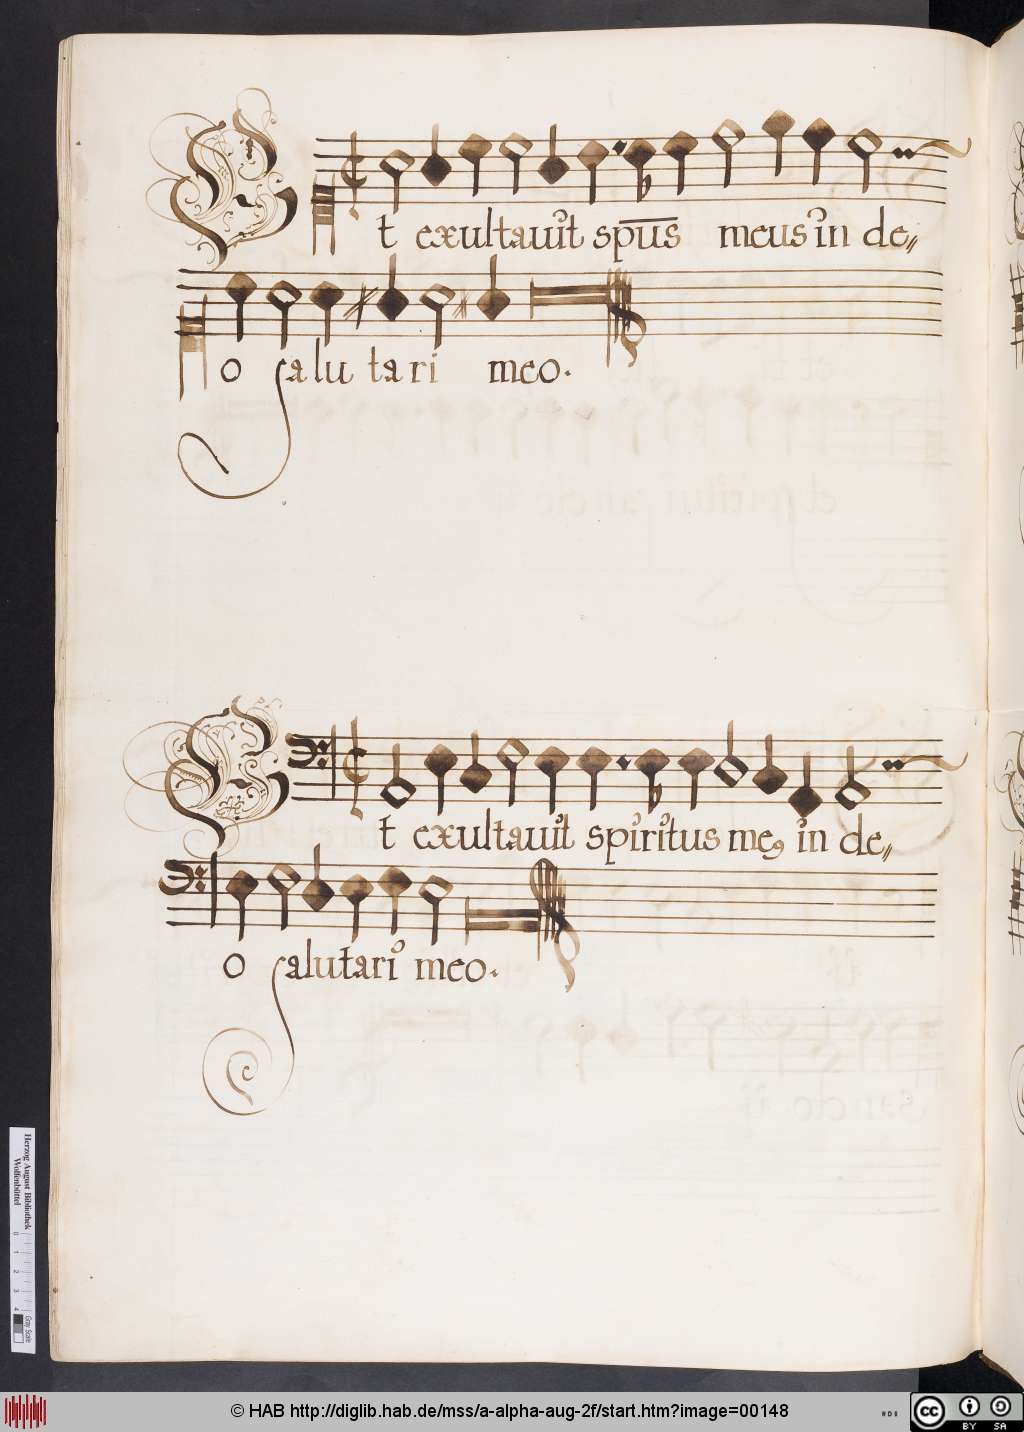 Et exultauit sp̅u̅s̅ meus in de〃
o salutari meo.
Et exultauit spiritus meꝯ in de〃
o salutari meo.
Herzog August Bibliothek
Wolfenbüttel
0 1 2 3 4
Gray Scale
© HAB http://diglib.hab.de/mss/a-alpha-aug-2f/start.htm?image=00148
cc BY SA